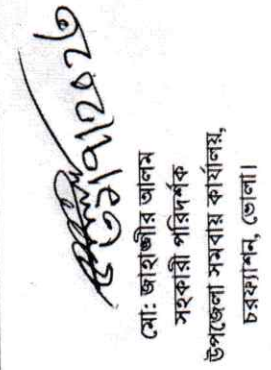 মো: জাহাঙ্গীর আলম
সহকারী পরিদর্শক
উপজেলা সমবায় কার্যালয়,
চরফ্যাশন, ভোলা।